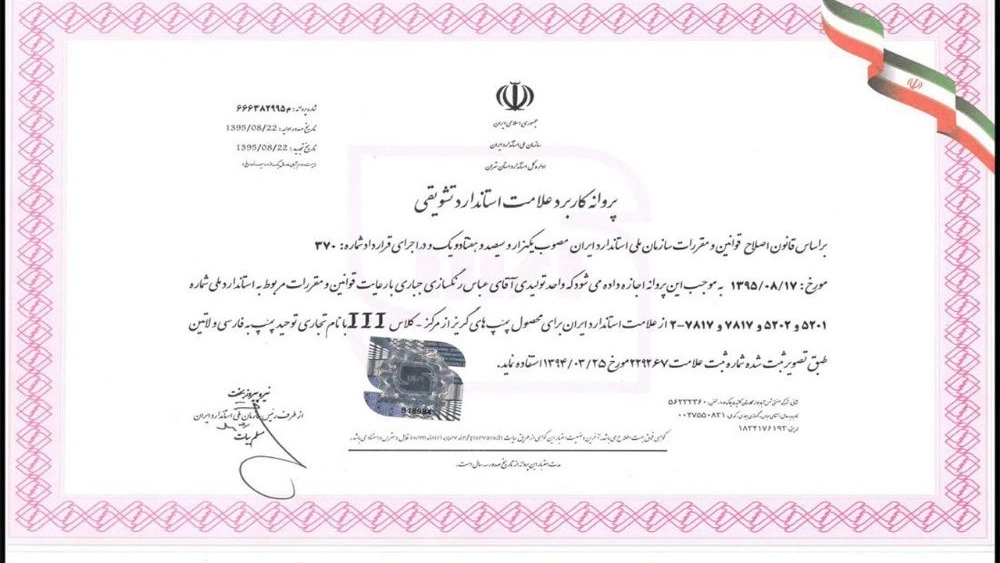 جمهوری اسلامی ایران
سازمان ملی استاندارد ایران
اداره کل استاندارد استان تهران
شماره پروانه: ۶۶۶۳۸۲۹۹۵م
تاریخ صدور اولیه: 1395/08/22
تاریخ تجدید: 1395/08/22
پروانه کاربرد علامت استاندارد تشویقی
براساس قانون اصلاح قوانین و مقررات سازمان ملی استاندارد ایران مصوب یکهزار و سیصد و هفتاد و یک و در اجرای قرارداد شماره: ۳۷۰
مورخ: ۱۳۹۵/۰۸/۱۷ به موجب این پروانه اجازه داده می شود که واحد تولیدی آقای عباس رنگسازی جباری با رعایت قوانین و مقررات مربوط به استاندارد ملی شماره
۵۲۰۱ و ۵۲۰۲ و ۷۸۱۷ و ۷۸۱۷-۲ از علامت استاندارد ایران برای محصول پمپ های گریز از مرکز - کلاس III با نام تجاری توحید پمپ به فارسی و لاتین
طبق تصویر ثبت شده شماره ثبت علامت ۲۲۹۲۶۷ مورخ ۱۳۹۴/۰۳/۲۵ استفاده نماید.
نیره پیروزبخت
از طرف رئیس سازمان ملی استاندارد ایران
مسلم بیات
۵۶۲۳۲۳۶۰
۰۰۳۷۵۵۰۸۲۱
۱۸۳۳۱۷۶۱۹۳
گواهی فوق جهت اطلاع می باشد، آخرین وضعیت اعتبار این گواهی از طریق سایت قابل دسترس و استناد می باشد.
مدت اعتبار این پروانه از تاریخ صدور سه سال است.